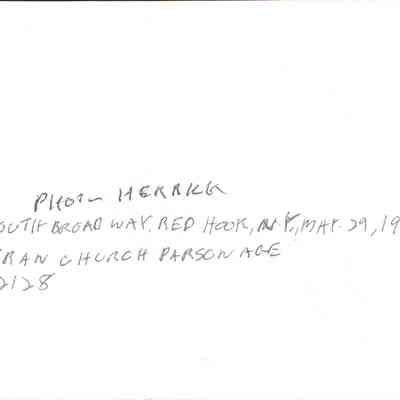 PHOTO HERRICK
OUTH BROADWAY. RED HOOK, N.Y., MAY. 29, 19
RAN CHURCH PARSONAGE
2128